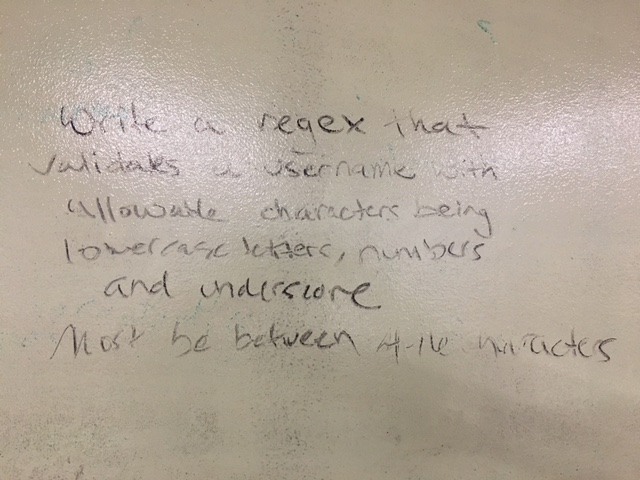 Write a regex that
validates a username with
allowable characters being
lowercase letters, numbers
and underscore
Must be between 4-16 characters